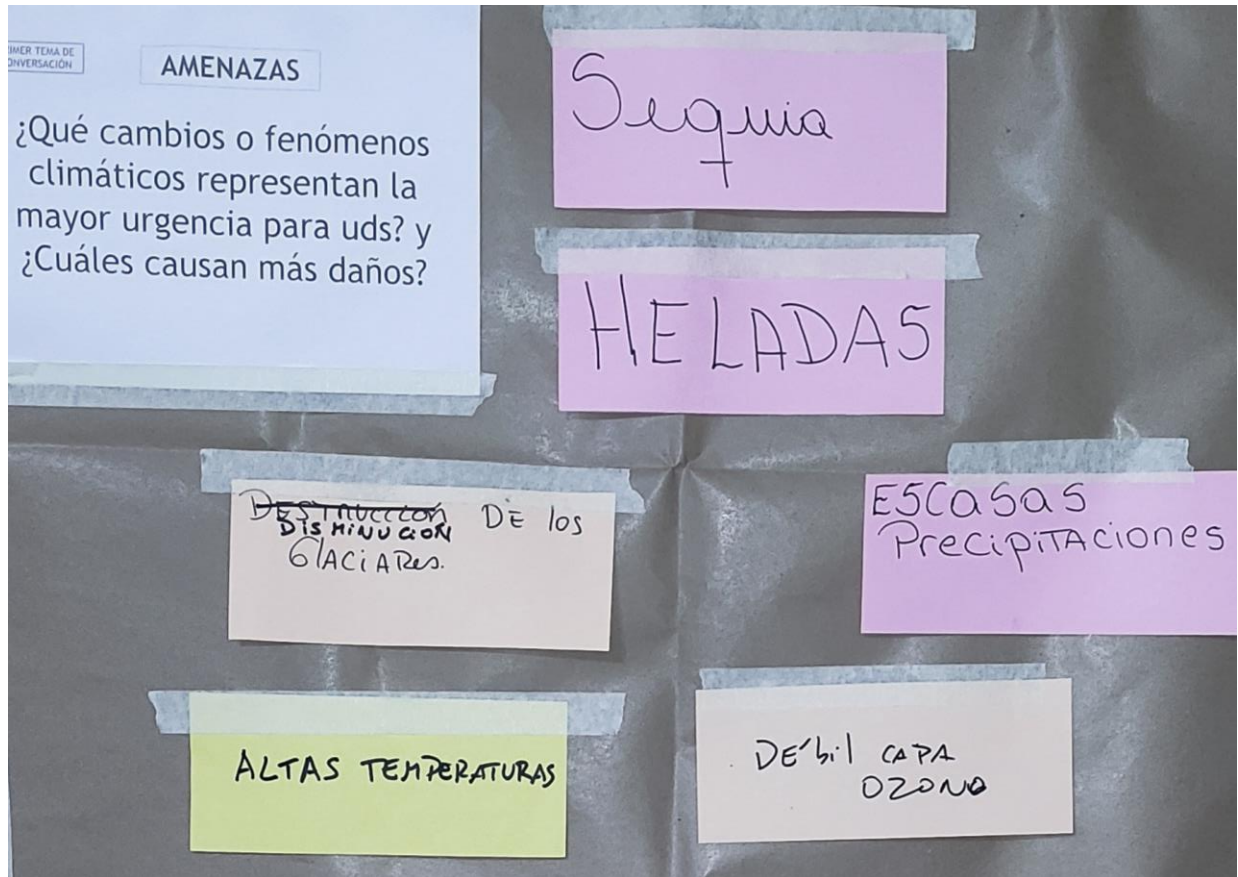 IMER TEMA DE
ONVERSACIÓN
AMENAZAS
¿Qué cambios o fenómenos
climáticos representan la
mayor urgencia para uds? y
¿Cuáles causan más daños?
Sequia
HELADAS
DESTRUCCIÓN DE los
DISMINUCION
GlACiARes.
ESCaSaS
PreciPiTACiones
ALTAS TEMPERATURAS
DÉbil CAPA
OZONO